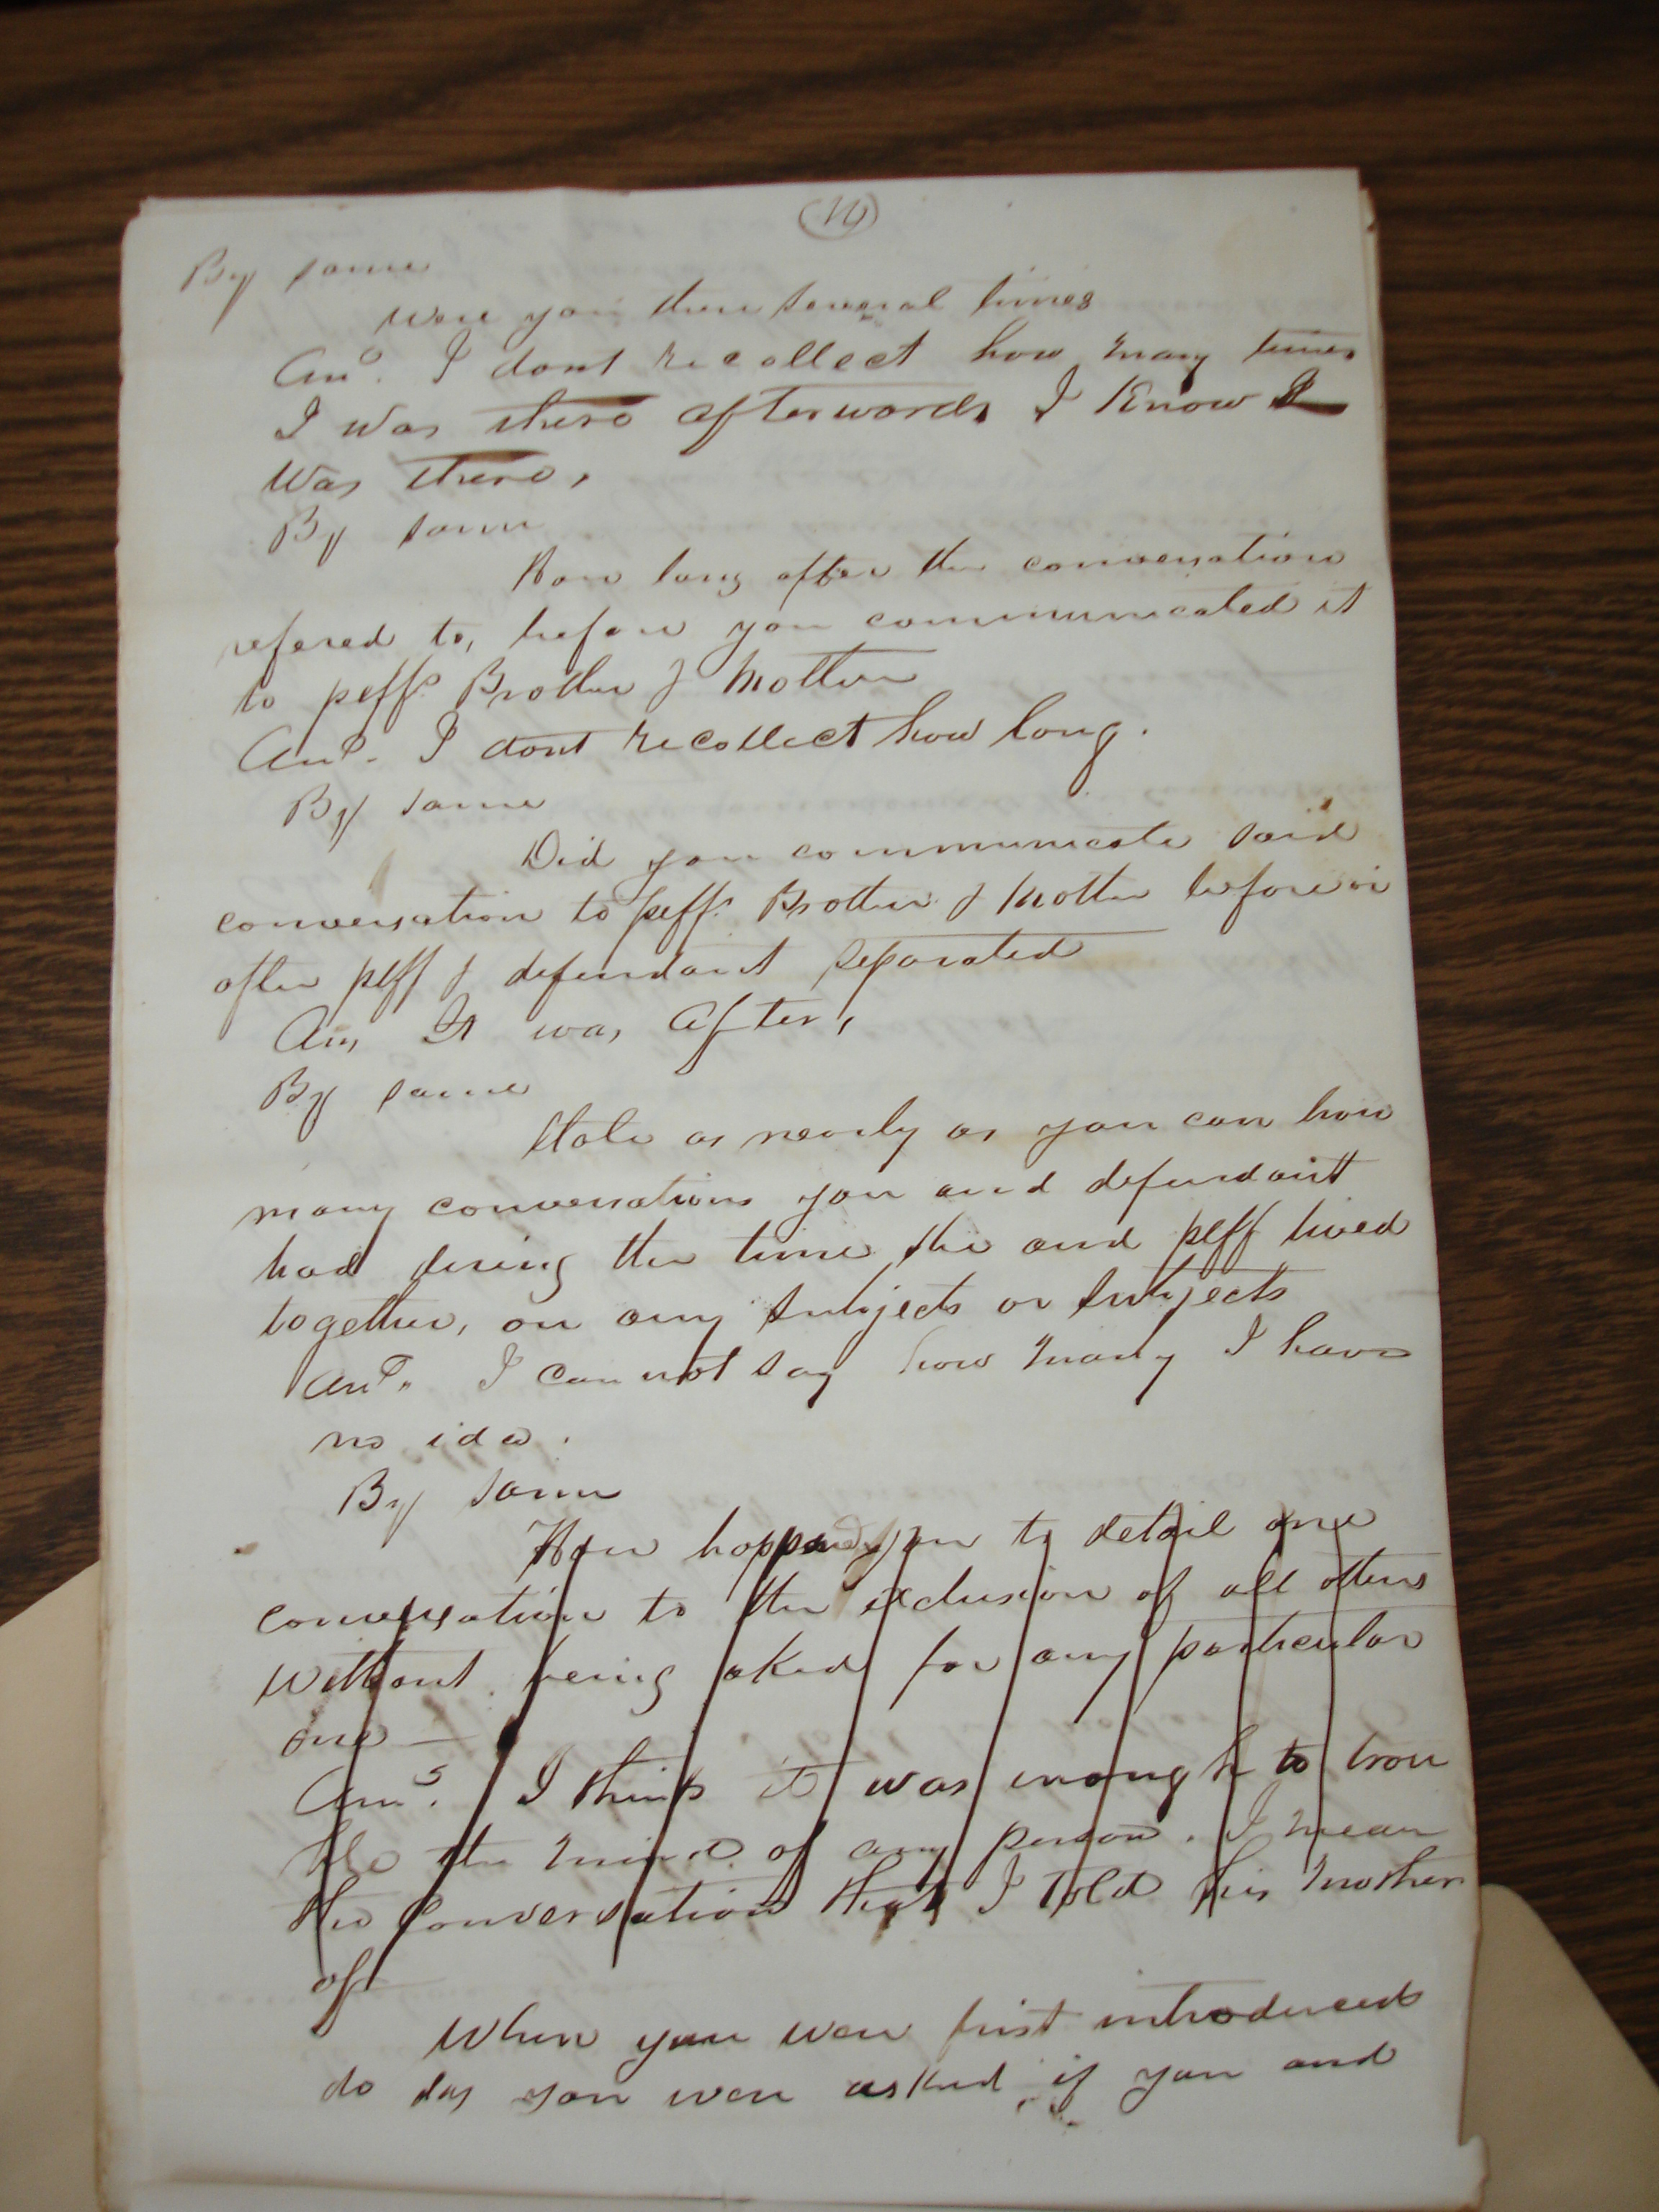 By same
were you there several times
Ans. I dont recollect how many times
I was there afterwards I Know I
was there,
By same
How long after the conversation
refered to, before you communicated it
to plffs Brother & Mother
Ans. I dont recollect how long.
By same
Did you communicate said
conversation to plffs Brother & Mother before or
after plff & defendant separated
Ans It was after,
By same
State as nearly as you can how
many conversations you and defendant
had during the time she and plff lived
together, on any subjects or subjects
Ans. I can not say how many I have
no idea.
By same
How happened you to detail one
conversation to the exclusion of all others
without being asked for any particular
one
Ans. I think it was enough to trou
ble the mind of any person. I mean
the conversation that I told his mother
of
When you were first introduced
to day you were asked if you and